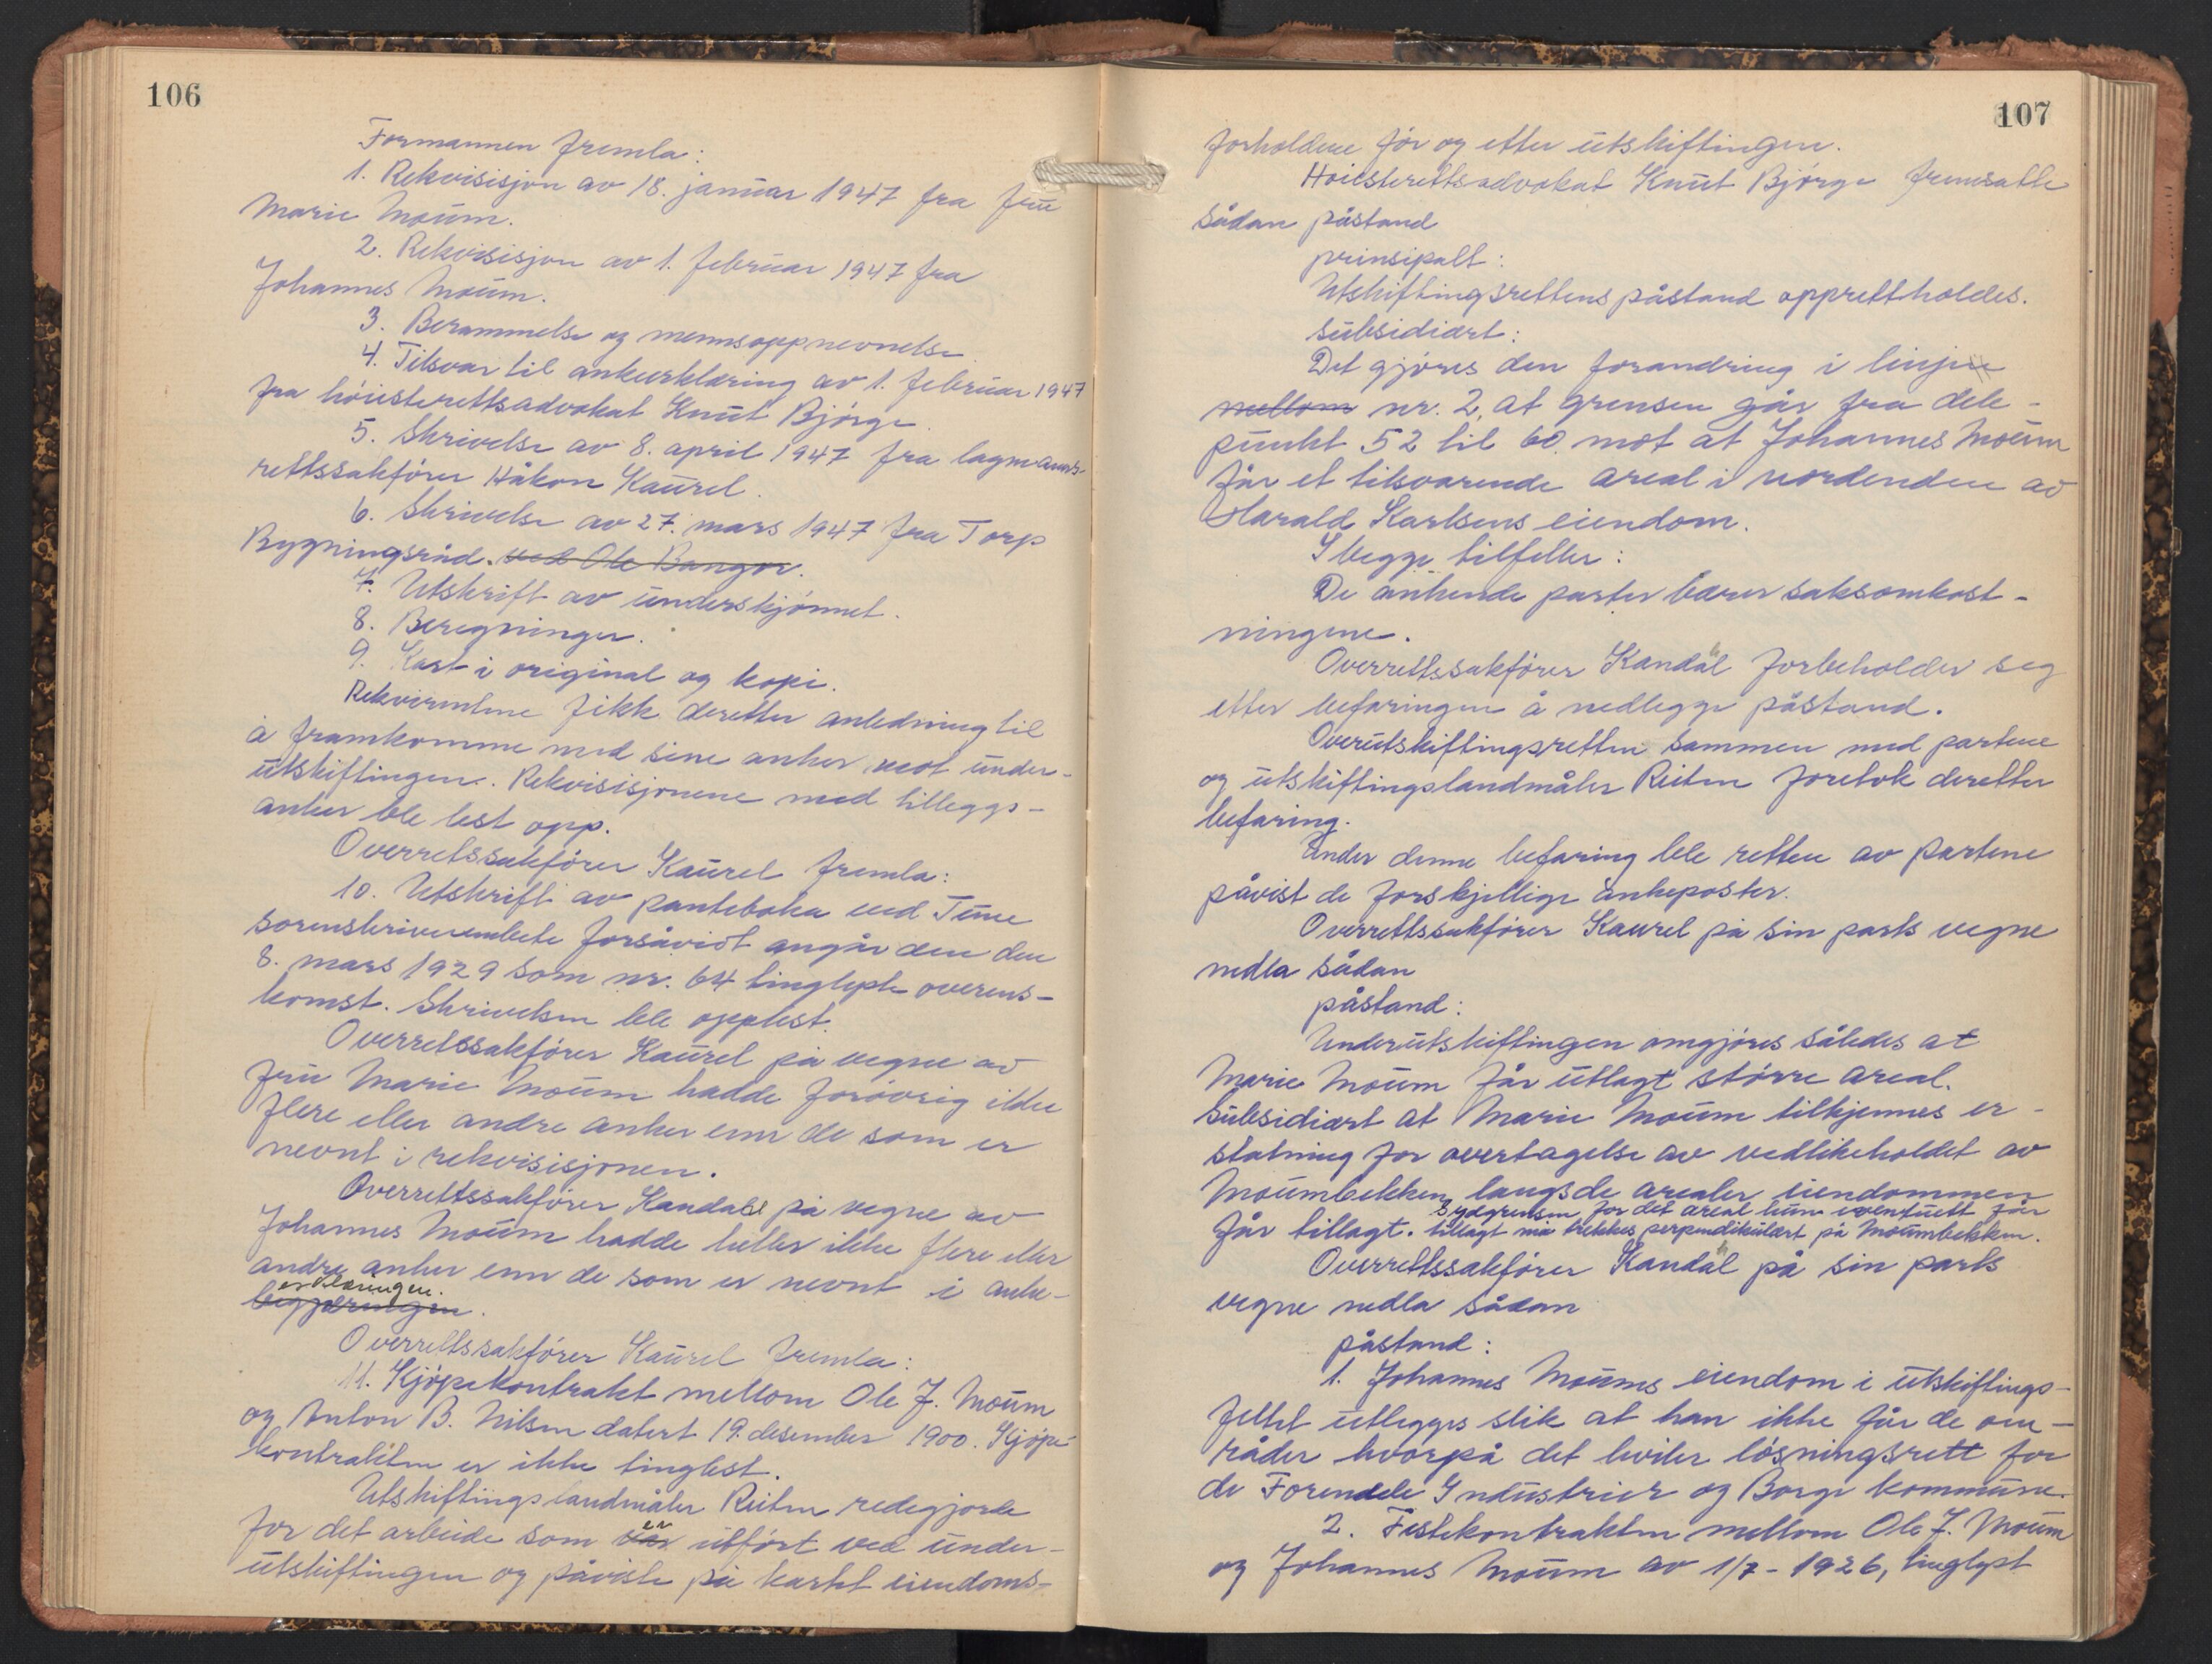 106
Formannen fremla:
1. Rekvisisjon av 18. januar 1947 fra fru
Marie Moum.
2. Rekvisisjon av 1. februar 1947 fra
Johannes Moum.
3. Berammelse og mennsoppnevnelse
4. Tilsvar til ankeerklæring av 1. februar 1947
fra höiesterettsadvokat Knut Bjørge.
5. Skrivelse av 8. april 1947 fra lagmanns-
rettssakfører Håkon Kaurel.
6. Skrivelse av 27. mars 1947 fra Torp
Bygningsråd. ved Ole Bangor.
7. Utskrift av underskjønnet.
8. Beregninger.
9. Kart i original og kopi.
Rekvirentene fikk deretter anledning til
å framkomme med sine anker mot under-
utskiftingen. Rekvisisjonene med tilleggs-
anker ble lest opp.
Overretssakfører Kaurel fremla:
10. Utskrift av panteboka ved Tune
sorenskriverembete forsåvidt angår den den
8. mars 1929 som nr. 64 tinglyste overens-
komst. Skrivelsen ble opplest.
Overretssakfører Kaurel på vegne av
fru Marie Moum hadde forøvrig ikke
flere eller andre anker enn de som er
nevnt i rekvisisjonen.
Overrettssakfører Kandahl på vegne av
Johannes Moum hadde heller ikke flere eller
andre anker enn de som er nevnt i anke-
erklæringen.
begjæringen.
Overrettssakfører Kaurel fremla:
11. Kjøpekontrakt mellom Ole J. Moum
og Anton B. Nilsen datert 19. desember 1900. Kjøpe-
kontrakten er ikke tinglest.
Utskiftingslandmåler Reiten redegjorde
er
for det arbeide som var utført ved under-
utskiftingen og påviste på kartet eiendoms-
107
forholdene før og etter utskiftingen.
Høiesterettsadvokat Knut Bjørge fremsatte
sådan påstand
prinsipalt:
Utskiftingsrettens påstand opprettholdes.
subsidiært:
Det gjøres den forandring i linjen
mellom nr. 2, at grensen går fra dele-
punkt 52 til 60. mot at Johannes Moum
får et tilsvarende areal i nordenden av
Harald Karlsens eiendom.
I begge tilfeller:
De ankende parter bærer saksomkost-
ningene.
Overrettssakfører Kandal forbeholder seg
etter befaringen å nedlegge påstand.
Overutskiftingsretten sammen med partene
og utskiftingslandmåler Reiten foretok deretter
befaring.
Under denne befaring ble retten av partene
påvist de forskjellige ankeposter.
Overrettssakfører Kaurel på sin parts vegne
nedla sådan
påstand:
Underutskiftingen omgjøres således at
Marie Moum får utlagt større areal.
Subsidiært at Marie Moum tilkjennes er-
statning for overtagelse av vedlikeholdet av
Moumbekken langs de arealer eiendommen
Sydgrensen for det areal hun eventuelt får
får tillagt. tillagt må trekkes perpendikulært på Moumbekken.
Overrettssakfører Kandal på sin parts
vegne nedla sådan
påstand:
1. Johannes Moums eiendom i utskiftings-
feltet utlegges slik at han ikke får de om-
råder hvorpå det hviler løsningsrett for
de Forendele Industrier og Borge kommune.
2. Festekontrakten mellom Ole J. Moum
og Johannes Moum av 1/7-1926, tinglyst